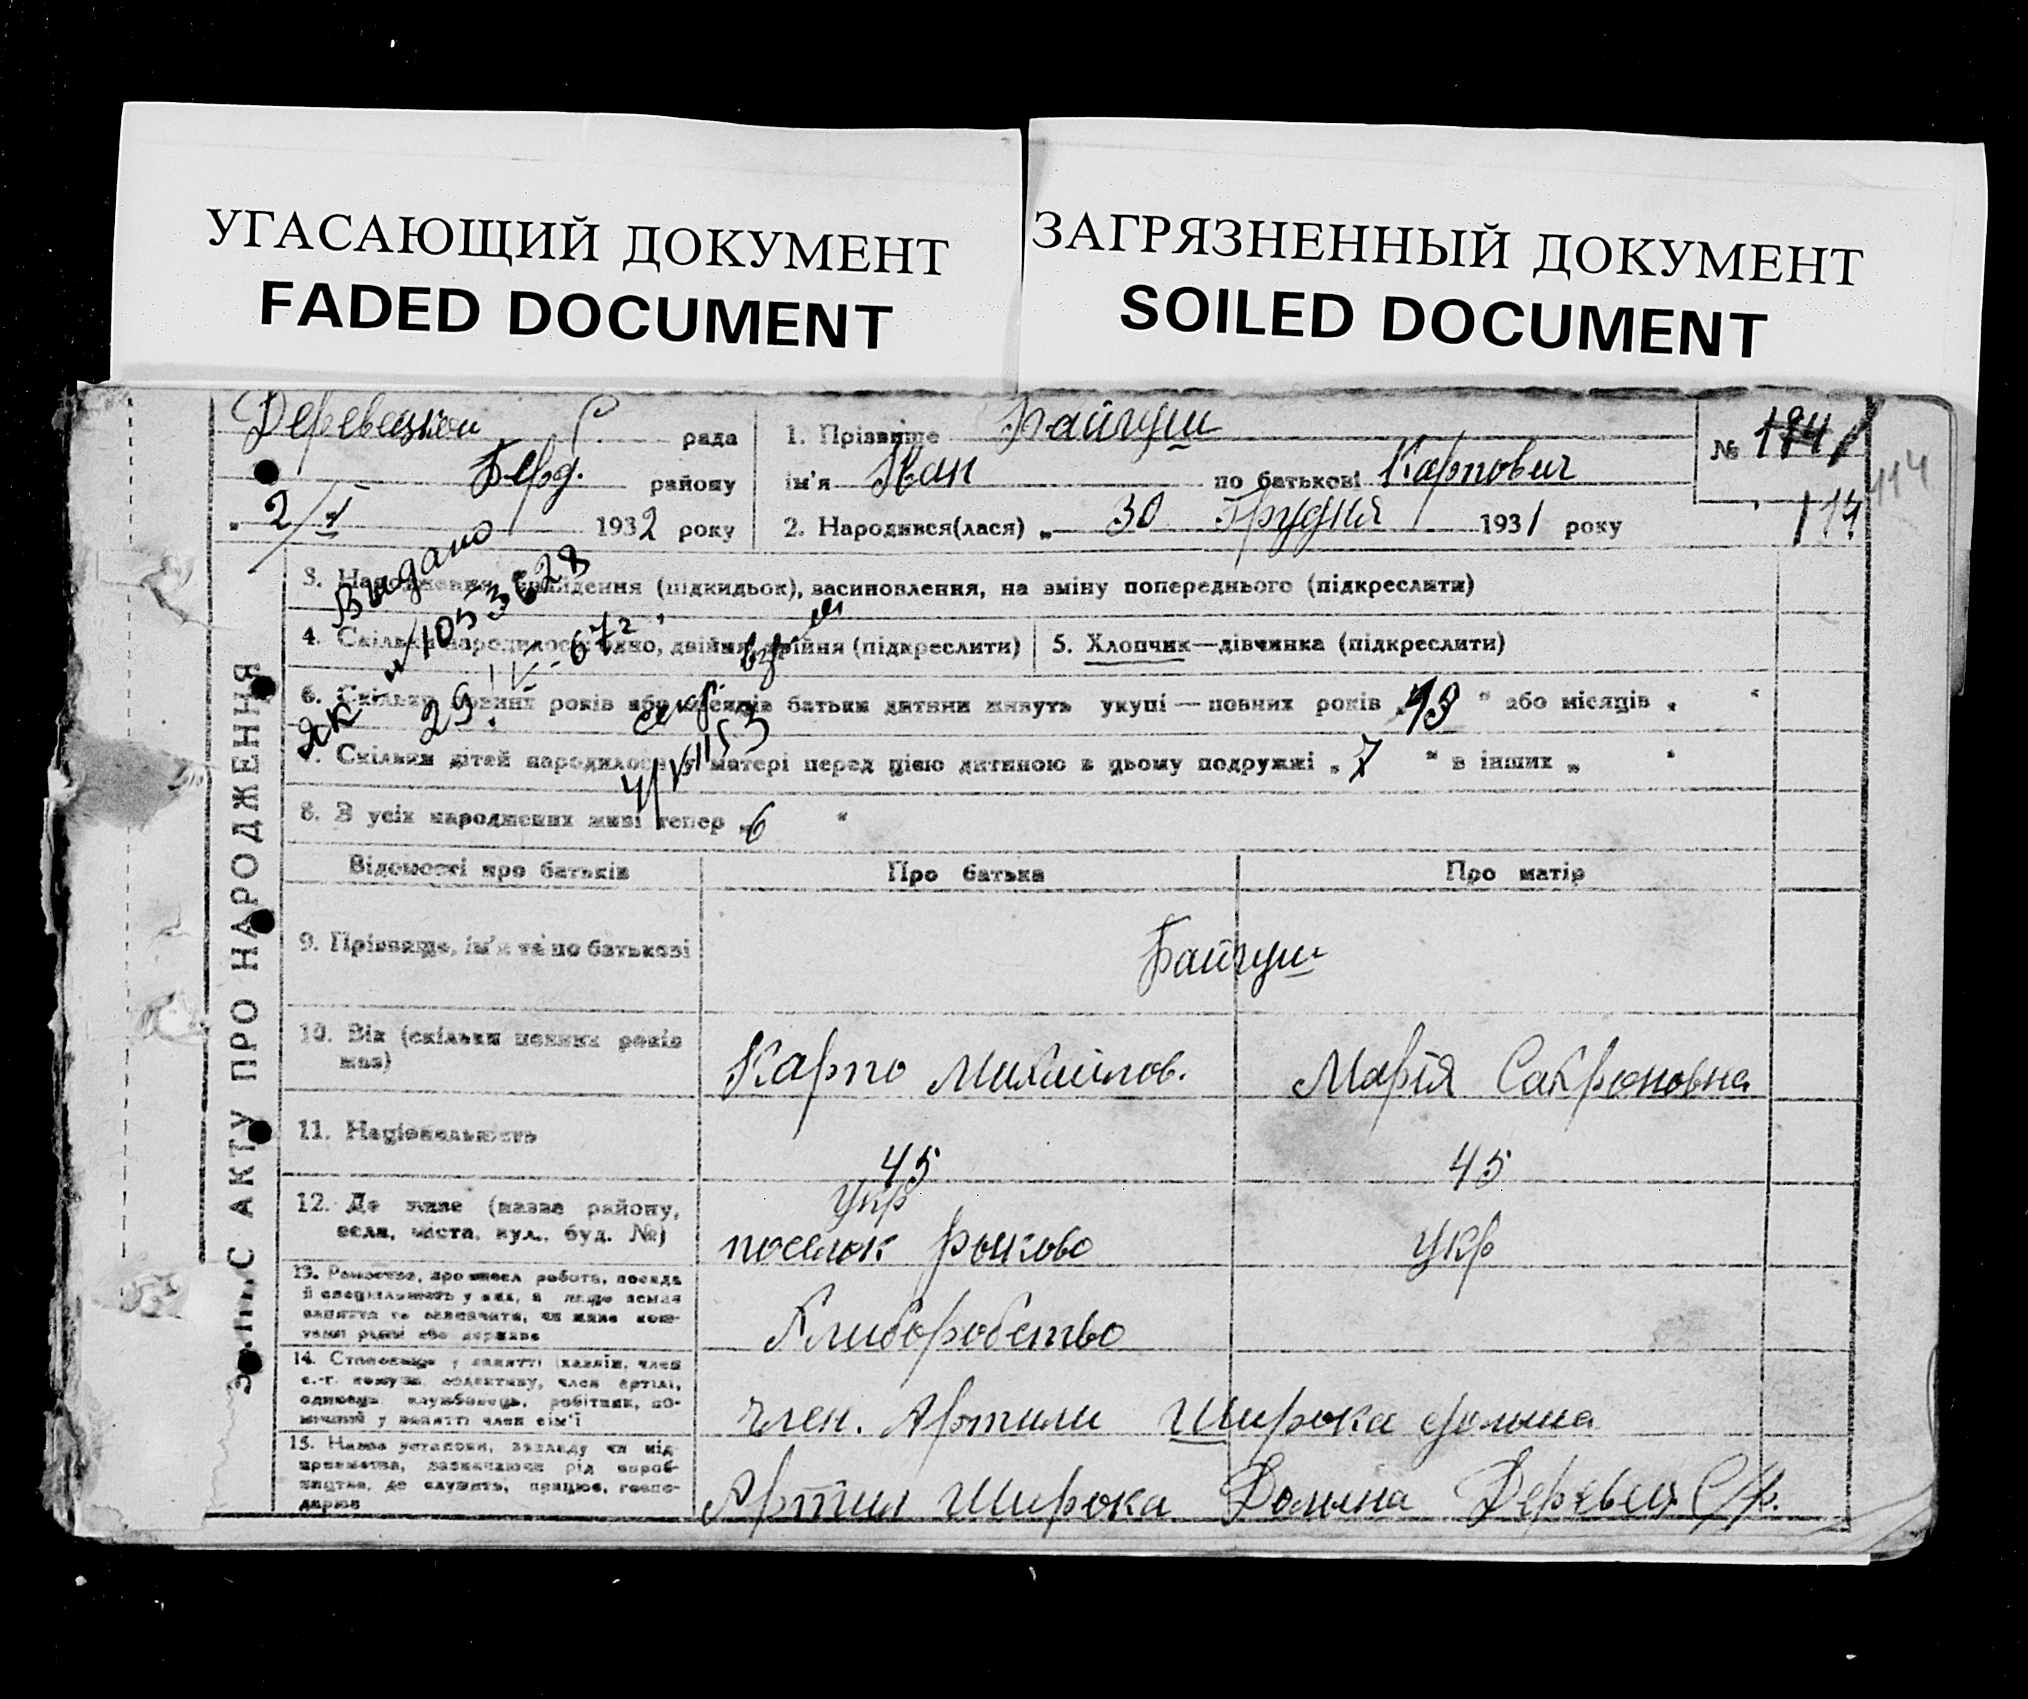 УГАСАЮЩИЙ ДОКУМЕНТ
FADED DOCUMENT
ЗАГРЯЗНЕННЫЙ ДОКУМЕНТ
SOILED DOCUMENT
рада
Берд. району
2/I 1932 року
1. Прізвище Байгуш
ім'я Іван по батькові Карпович
2. Народився(лася) „ 30 Грудня 1931 року
№
114
114
Видано
3. Народження, (підкидьок), васиновлення, на зміну попереднього (підкреслити)
4. Скільки народилося: одно, двійня, трійня (підкреслити)
5. Хлопчик—дівчинка (підкреслити)
6. Скільки повних років або місяців батьки дитини живуть укупі — повних років „ " або місяців „ "
7. Скільки дітей народилося у матері перед цією дитиною в цьому подружжі „ 7 " в інших „ "
8. З усіх народжених живі тепер „ 6 "
ЗАПИС АКТУ ПРО НАРОДЖЕННЯ
Відомості про батьків
Про батька
Про матір
9. Прізвище, ім'я та по батькові
Байгуш
10. Вік (скільки повних років має)
Карпо Михайлов.
Марія
11. Національність
45
45
12. Де живе (назва району, села, міста, вул., буд. №)
укр
поселок
укр
13. Ремество, промисел робота, посада
й спеціальність у них, а якщо немає
заняття то зазначити, чи живе кош-
тами рідні або держави
Хлиборобство
14. Становище у занятті (хазяїн, член
с.-г. комуни, колективу, член артілі,
одинець, службовець, робітник, по-
мічний у занятті член сім'ї
член. Артили Широка долина
15. Назва установи, закладу чи під-
приємства, зазначаючи рід вироб-
ництва, де служить, працює, госпо-
дарює
Артил Широка Долина